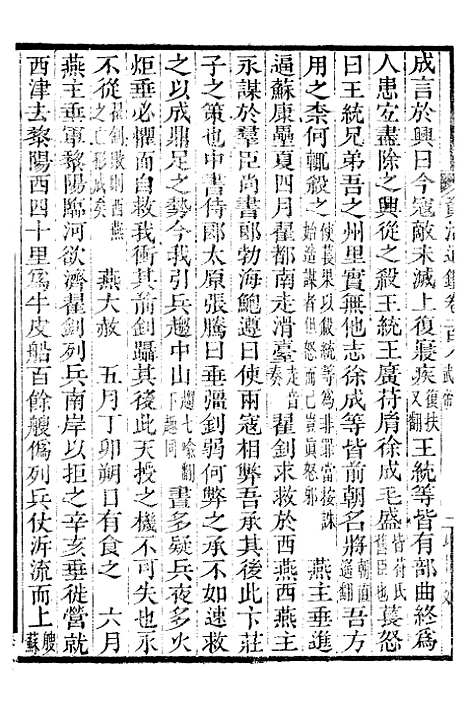 成言於興曰今寇敵未滅上復寢疾復扶又翻王統等皆有部曲終爲
人患宜盡除之興從之殺王統王廣苻胤徐成毛盛皆苻氏舊臣也萇怒
曰王統兄弟吾之州里實無他志徐成等皆前朝名將朝直遙翻吾方
用之柰何輒殺之使萇果以此怒興罪當按誅始造謀者但怒而已豈眞怒邪 燕主垂進
逼蘇康壘夏四月翟都南走滑臺走音奏 翟釗求救於西燕西燕主
永謀於羣臣尚書郎勃海鮑遵曰使兩寇相弊吾承其後此卞莊
子之策也中書侍郎太原張騰曰垂彊釗弱何弊之承不如速救
之以成鼎足之勢今我引兵趨中山趨七喻翻下趨同晝多疑兵夜多火
炬垂必懼而自救我衝其前釗躡其後此天授之機不可失也永
不從翟釗敗則西燕之亡形成矣 燕大赦 五月丁卯朔日有食之 六月
燕主垂軍黎陽臨河欲濟翟釗列兵南岸以拒之辛亥垂徙營就
西津去黎陽西四十里爲牛皮船百餘艘僞列兵仗泝流而上艘蘇
資治通鑑卷一百八